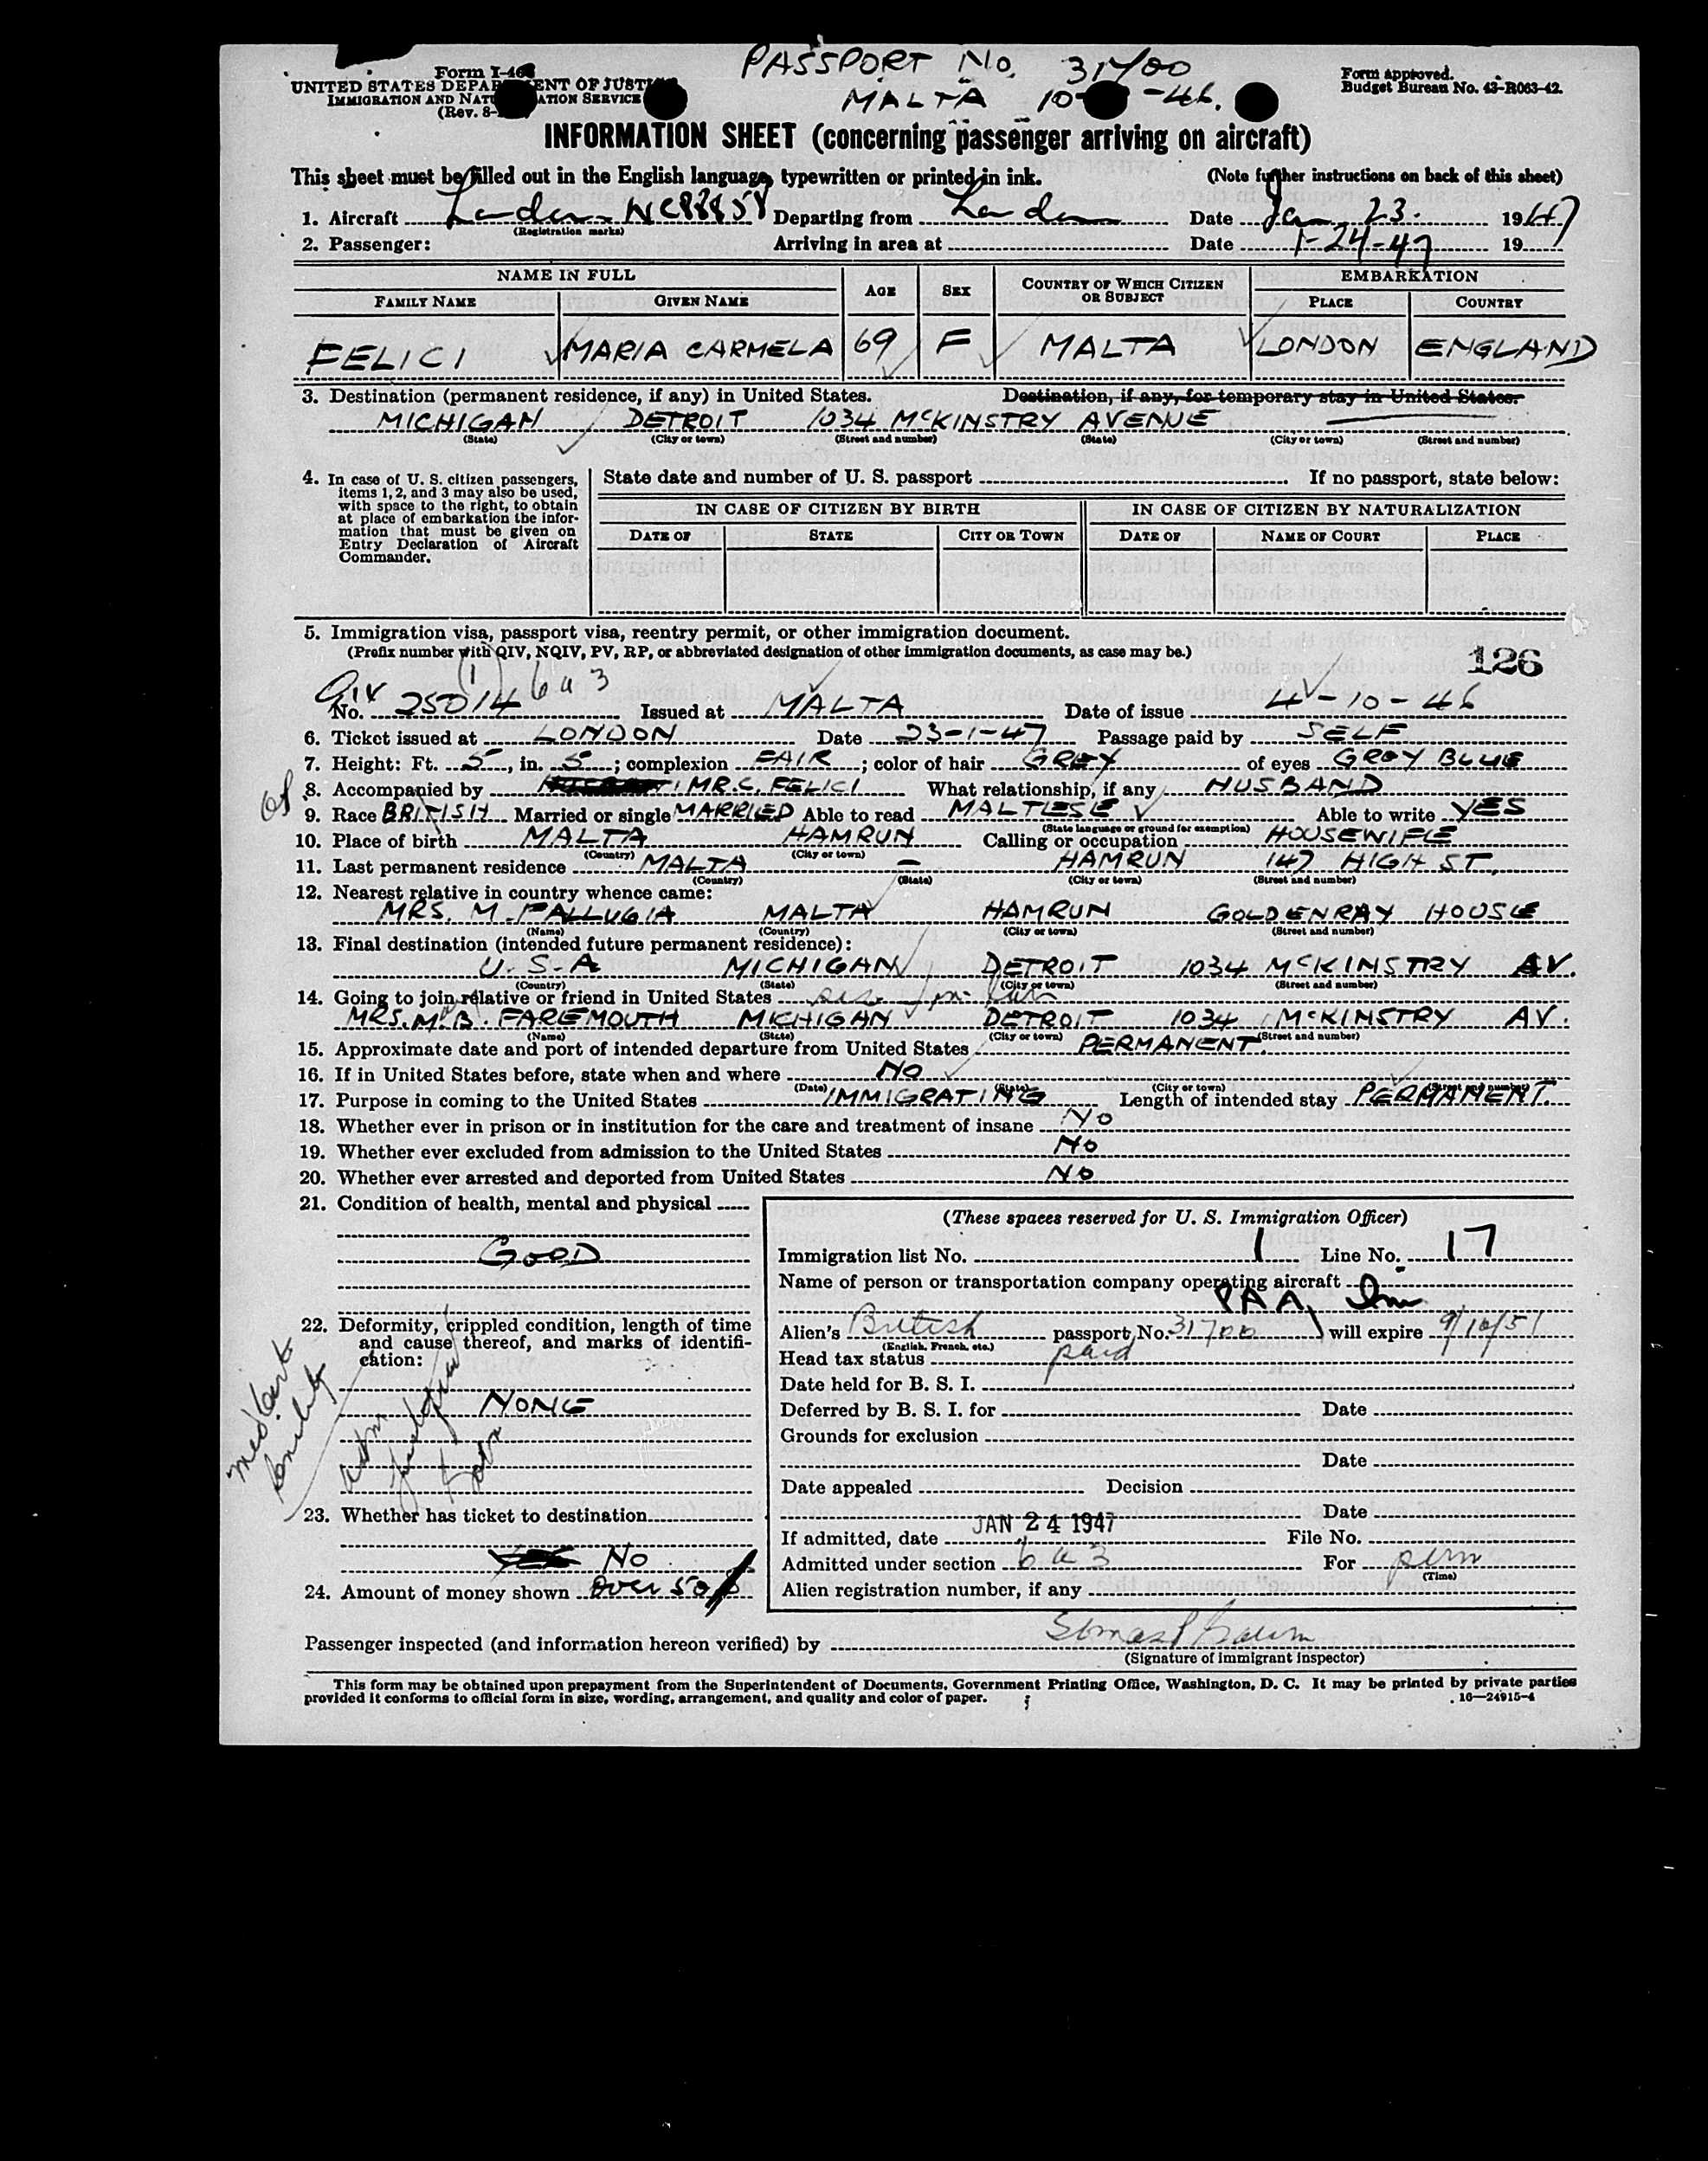 PASSPORT No. 31700
MALTA 10- -46.
Form I-466
UNITED STATES DEPARTMENT OF JUSTICE
IMMIGRATION AND NATURALIZATION SERVICE
(Rev. 8-
Form approved.
Budget Bureau No. 43-R063-42.
INFORMATION SHEET (concerning passenger arriving on aircraft)
This sheet must be filled out in the English language, typewritten or printed in ink. (Note further instructions on back of this sheet)
1. Aircraft London NC88858 Departing from London Date Jan 23. 1947
(Registration marks)
2. Passenger: Arriving in area at Date 1-24-47 19
NAME IN FULL AGE SEX COUNTRY OF WHICH CITIZEN OR SUBJECT EMBARKATION
FAMILY NAME GIVEN NAME PLACE COUNTRY
FELICI MARIA CARMELA 69 F MALTA LONDON ENGLAND
3. Destination (permanent residence, if any) in United States. Destination, if any, for temporary stay in United States.
MICHIGAN DETROIT 1034 McKINSTRY AVENUE
(State) (City or town) (Street and number) (State) (City or town) (Street and number)
4. In case of U. S. citizen passengers, items 1, 2, and 3 may also be used, with space to the right, to obtain at place of embarkation the information that must be given on Entry Declaration of Aircraft Commander.
State date and number of U. S. passport If no passport, state below:
IN CASE OF CITIZEN BY BIRTH IN CASE OF CITIZEN BY NATURALIZATION
DATE OF STATE CITY OR TOWN DATE OF NAME OF COURT PLACE
5. Immigration visa, passport visa, reentry permit, or other immigration document.
(Prefix number with QIV, NQIV, PV, RP, or abbreviated designation of other immigration documents, as case may be.)
126
QIV (1) 6 a 3
No. 25014 Issued at MALTA Date of issue 4-10-46
6. Ticket issued at LONDON Date 23-1-47 Passage paid by SELF
7. Height: Ft. 5, in. 5; complexion FAIR; color of hair GREY of eyes GREY BLUE
8. Accompanied by MR. C. FELICI What relationship, if any HUSBAND
9. Race BRITISH Married or single MARRIED Able to read MALTESE Able to write YES
(State language or ground for exemption)
10. Place of birth MALTA HAMRUN Calling or occupation HOUSEWIFE
(Country) (City or town)
11. Last permanent residence MALTA – HAMRUN 147 HIGH ST.
(Country) (State) (City or town) (Street and number)
12. Nearest relative in country whence came:
MRS. M. FALLUGIA MALTA HAMRUN GOLDENRAY HOUSE
(Name) (Country) (City or town) (Street and number)
13. Final destination (intended future permanent residence):
U.S.A MICHIGAN DETROIT 1034 McKINSTRY AV.
(Country) (State) (City or town) (Street and number)
14. Going to join relative or friend in United States
MRS. M. B. FAREMOUTH MICHIGAN DETROIT 1034 McKINSTRY AV.
(Name) (State) (City or town) (Street and number)
15. Approximate date and port of intended departure from United States PERMANENT.
16. If in United States before, state when and where NO
(Date) (State) (City or town) (Street and number)
17. Purpose in coming to the United States IMMIGRATING Length of intended stay PERMANENT.
18. Whether ever in prison or in institution for the care and treatment of insane No
19. Whether ever excluded from admission to the United States No
20. Whether ever arrested and deported from United States No
21. Condition of health, mental and physical
GOOD
22. Deformity, crippled condition, length of time and cause thereof, and marks of identification:
NONE
23. Whether has ticket to destination
No
24. Amount of money shown Over 50
(These spaces reserved for U. S. Immigration Officer)
Immigration list No. 1 Line No. 17
Name of person or transportation company operating aircraft
PAA
Alien's British passport No. 31700 will expire 9/10/51
(English, French, etc.)
Head tax status paid
Date held for B. S. I.
Deferred by B. S. I. for Date
Grounds for exclusion
Date
Date appealed Decision
Date
If admitted, date JAN 24 1947 File No.
Admitted under section 6 a 3 For perm
(Time)
Alien registration number, if any
Passenger inspected (and information hereon verified) by
(Signature of immigrant inspector)
This form may be obtained upon prepayment from the Superintendent of Documents, Government Printing Office, Washington, D. C. It may be printed by private parties
provided it conforms to official form in size, wording, arrangement, and quality and color of paper. 16—24915-4